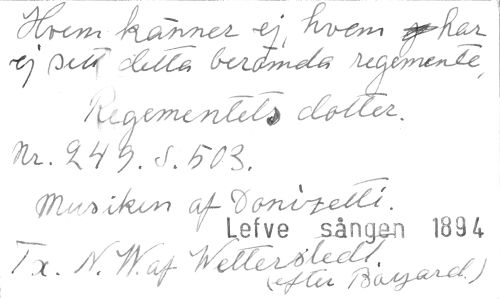 Hvem känner ej, hvem har
ej sett detta berömda regemente,
Regementets dotter.
Nr. 249. S. 503.
Musiken af Donizetti.
Lefve sången 1894
Tx. N. W. af Wetterstedt
(efter Bayard.)